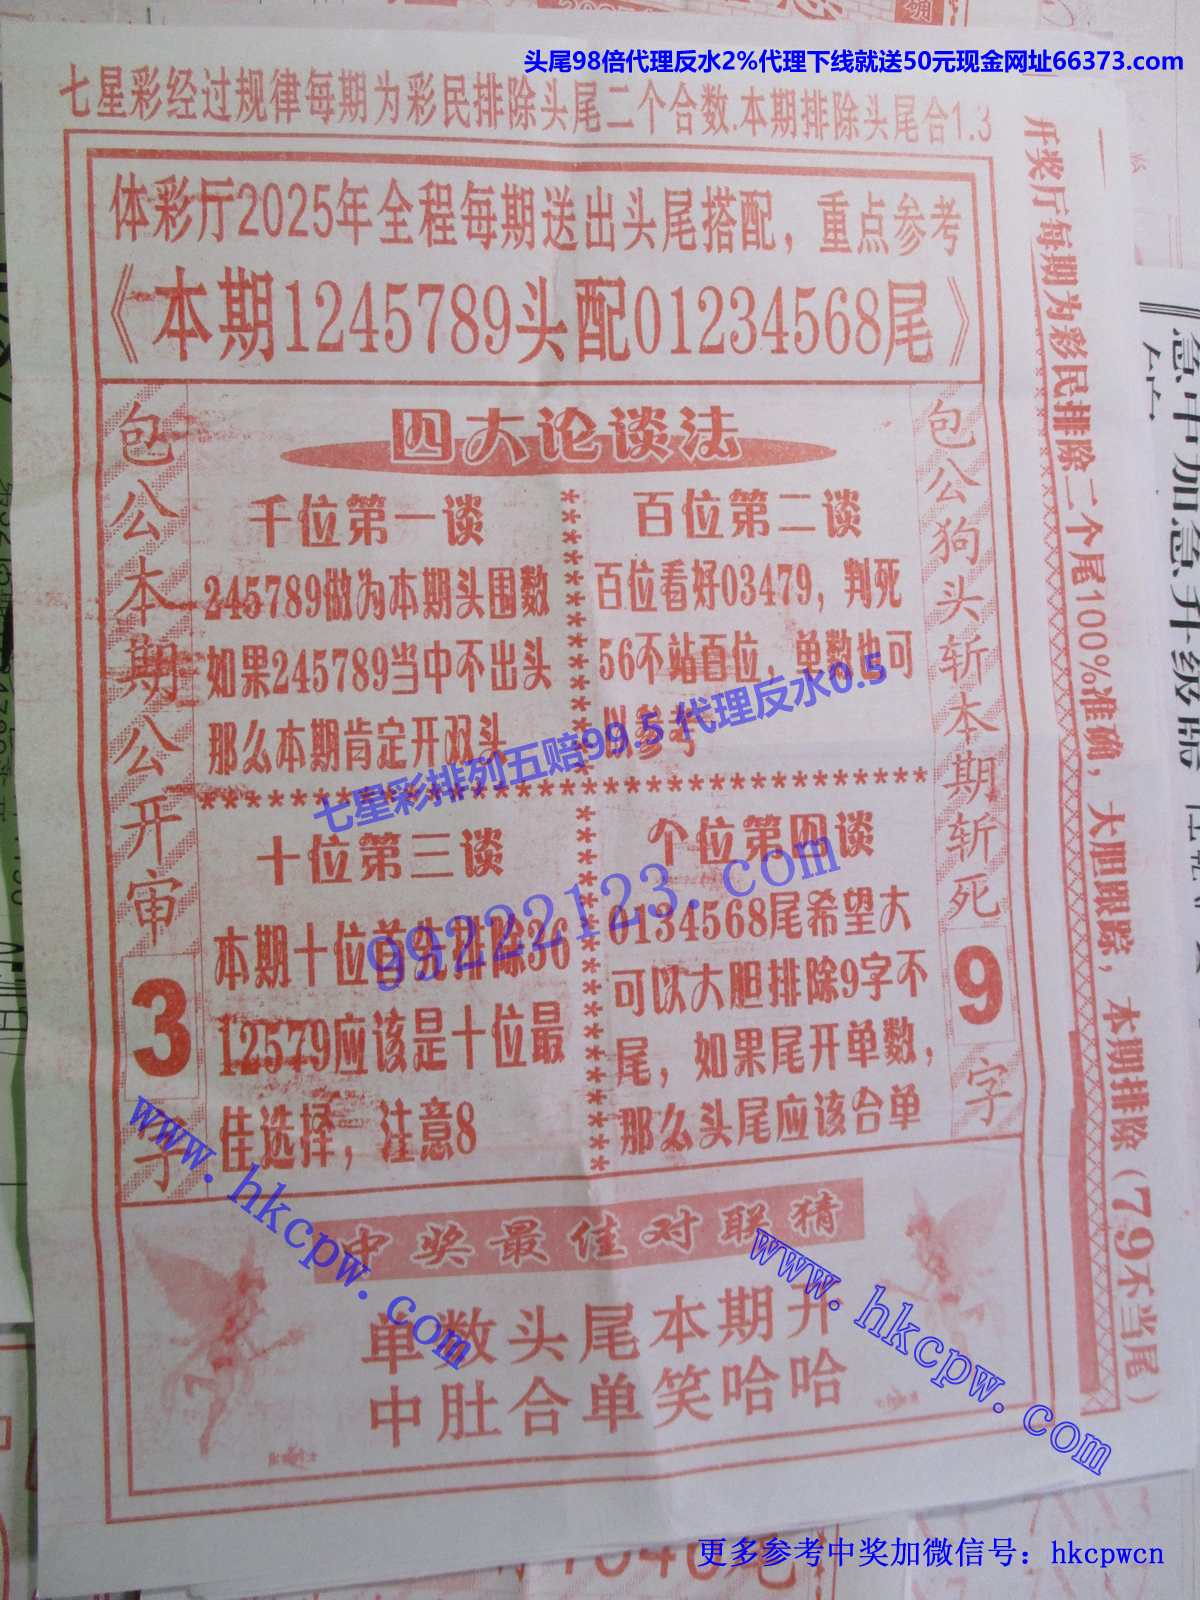 头尾98倍代理反水2%代理下线就送50元现金网址66373.com
七星彩经过规律每期为彩民排除头尾二个合数.本期排除头尾合1.3
体彩厅2025年全程每期送出头尾搭配，重点参考
《本期1245789头配01234568尾》
包公本期公开审
3
字
四大论谈法
千位第一谈
245789做为本期头围数
如果245789当中不出头
那么本期肯定开双头
百位第二谈
百位看好03479，判死
56不站百位，单数也可
以参考
七星彩排列五赔99.5 代理反水0.5
99222123.com
十位第三谈
本期十位首先排除36
12579应该是十位最
佳选择，注意8
个位第四谈
0134568尾希望大
可以大胆排除9字不
尾，如果尾开单数，
那么头尾应该合单
包公狗头斩本期斩死
9
字
开奖厅每期为彩民排除二个尾100%准确，大胆跟踪，本期排除（79不当尾）
中奖最佳对联猜
单数头尾本期开
中肚合单笑哈哈
www.hkcpw.com
www.hkcpw.com
急中加急升级器
更多参考中奖加微信号：hkcpwcn